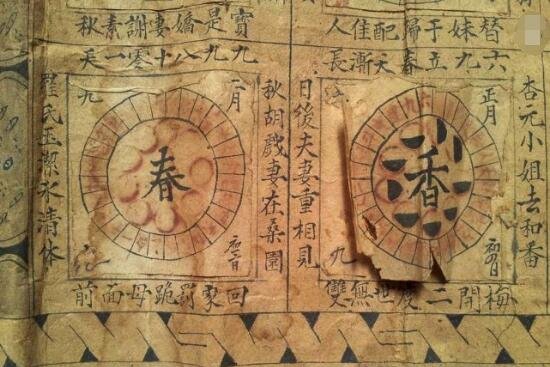 替妹于歸配佳人
六九立春天漸長
杏元小姐去和番
正月
香
九
梅開二度世無雙
日後夫妻重相見
寶是嬌妻謝素秋
九九八十零一天
秋胡戲妻在桑園
二月
九
春
九
回家罰跪母面前
羅氏玉潔氷清体